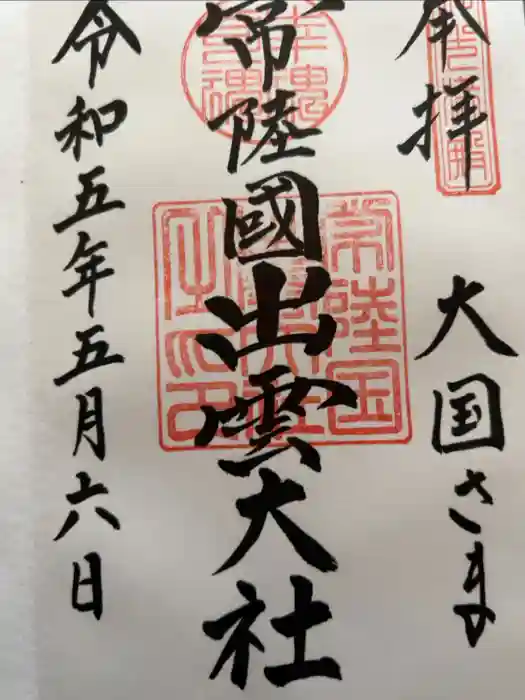 奉拝
大国さま
常陸國出雲大社
常陸国
令和五年五月六日